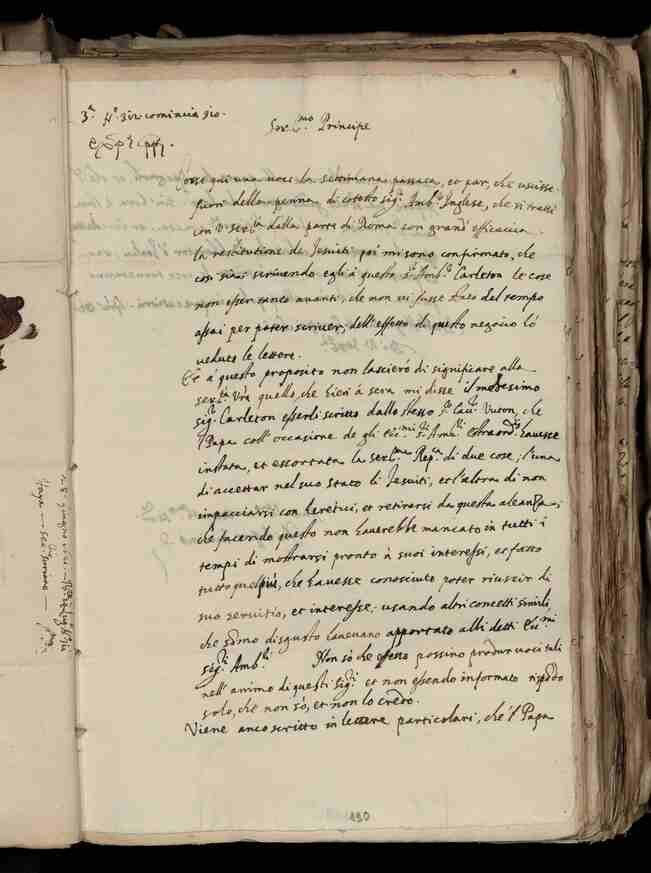 3.ª N.º 312 comincia 310.
Ser.mo Principe
Corse qui una voce la settimana passata, et par, che uscisse
fuori della penna di cotesto sig.r Amb.r Inglese, che si tratti
con V. Ser.tà dalla parte di Roma con grand' efficacia
la restitutione de Jesuiti poi mi sono confirmato, che
così stia scrivendo egli à questo s.r Amb.r Carleton le cose
non esser tanto avanti, che non vi fusse stato del tempo
assai per poter scriver, dell' effetto di questo negocio hò
veduto le lettere.
Et à questo proposito non lascierò di significare alla
Ser.tà V.ra quello, che hieri à sera mi disse il medesimo
sig.r Carleton esserli scritto dallo stesso s.r Cau.r Vuton, che
'l Papa coll' occasione de gli Ecc.mi s.ri Amb.ri estraord.ri havesse
instata, et essortata la ser.ma Rep.ca di due cose; l'una
di accettar nel suo stato li Jesuiti, et l'altra di non
impacciarsi con heretici, et retirarsi da questa aleanza;
che facendo questo non haverebbe mancato in tutti i
tempi di mostrarsi pronto à suoi interessi, et fatto
tutto quel più, che havesse conosciuto poter riuscir di
suo servitio, et interesse; usando altri concetti simili,
che somo disgusto havevano apportato alli detti Ecc.mi
sig.ri Amb.ri Non sò che effetto possino produr voci tali
nell' animo di questi sig.ri et non essendo informato rispondo
solo, che non sò, et non lo credo.
Viene anco scritto in lettere particolari, che 'l Papa
190